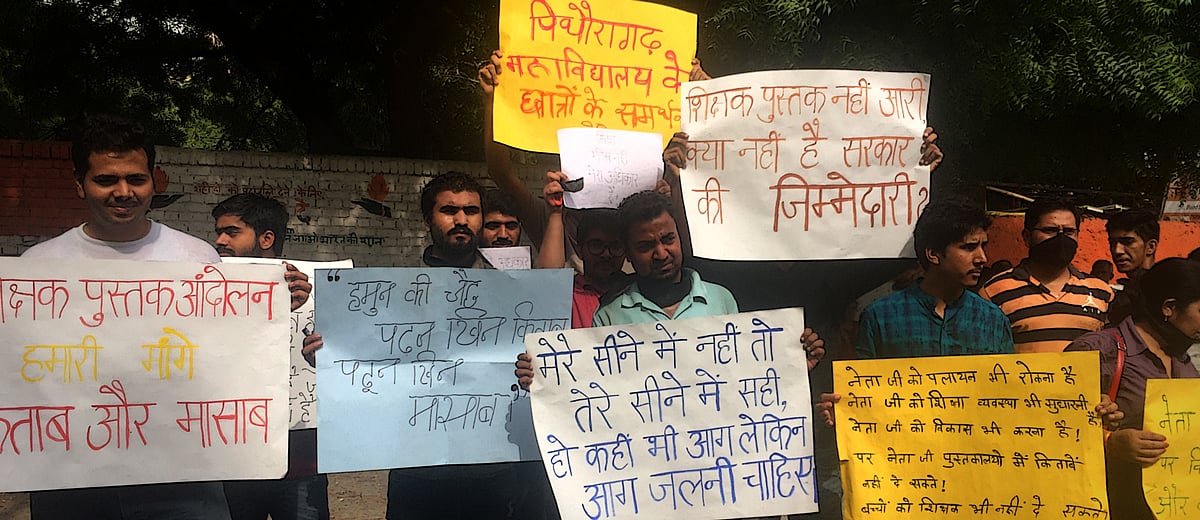 पिथौरागढ़
महाविद्यालय के
छात्रों के समर्थन
शिक्षक पुस्तक नहीं आरी
क्या नहीं है सरकार
की जिम्मेदारी?
क्षक पुस्तक आंदोलन
हमारी मांगे
ताब और मासाब
"हमुन की चैंद
पढन खिन किताब
पढून खिन
मासाब"
मेरे सीने में नहीं तो
तेरे सीने में सही,
हो कहीं भी आग लेकिन
आग जलनी चाहिए
नेता जी को पलायन भी रोकना है
नेता जी को शिक्षा व्यवस्था भी सुधारनी है
नेता जी को विकास भी करना है!
पर नेता जी पुस्तकालयों में किताबें
नहीं दे सकते!
बच्चों को शिक्षक भी नहीं दे सकते
नेता
पर
और